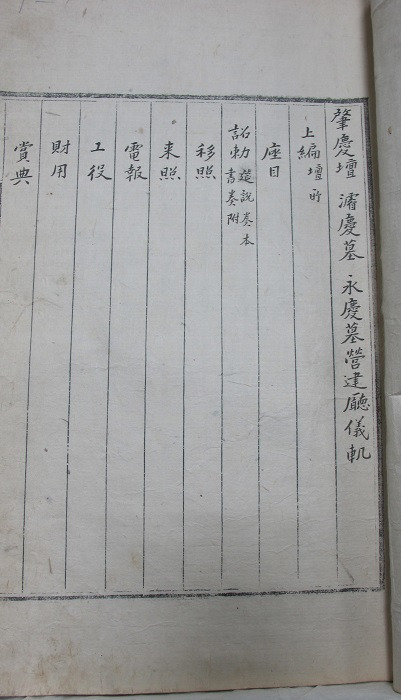 肇慶壇 濬慶墓 永慶墓營建廳儀軌
上編 壇所
座目
詔勅 筵說奏本書奏附
移照
来照
電報
工役
財用
賞典